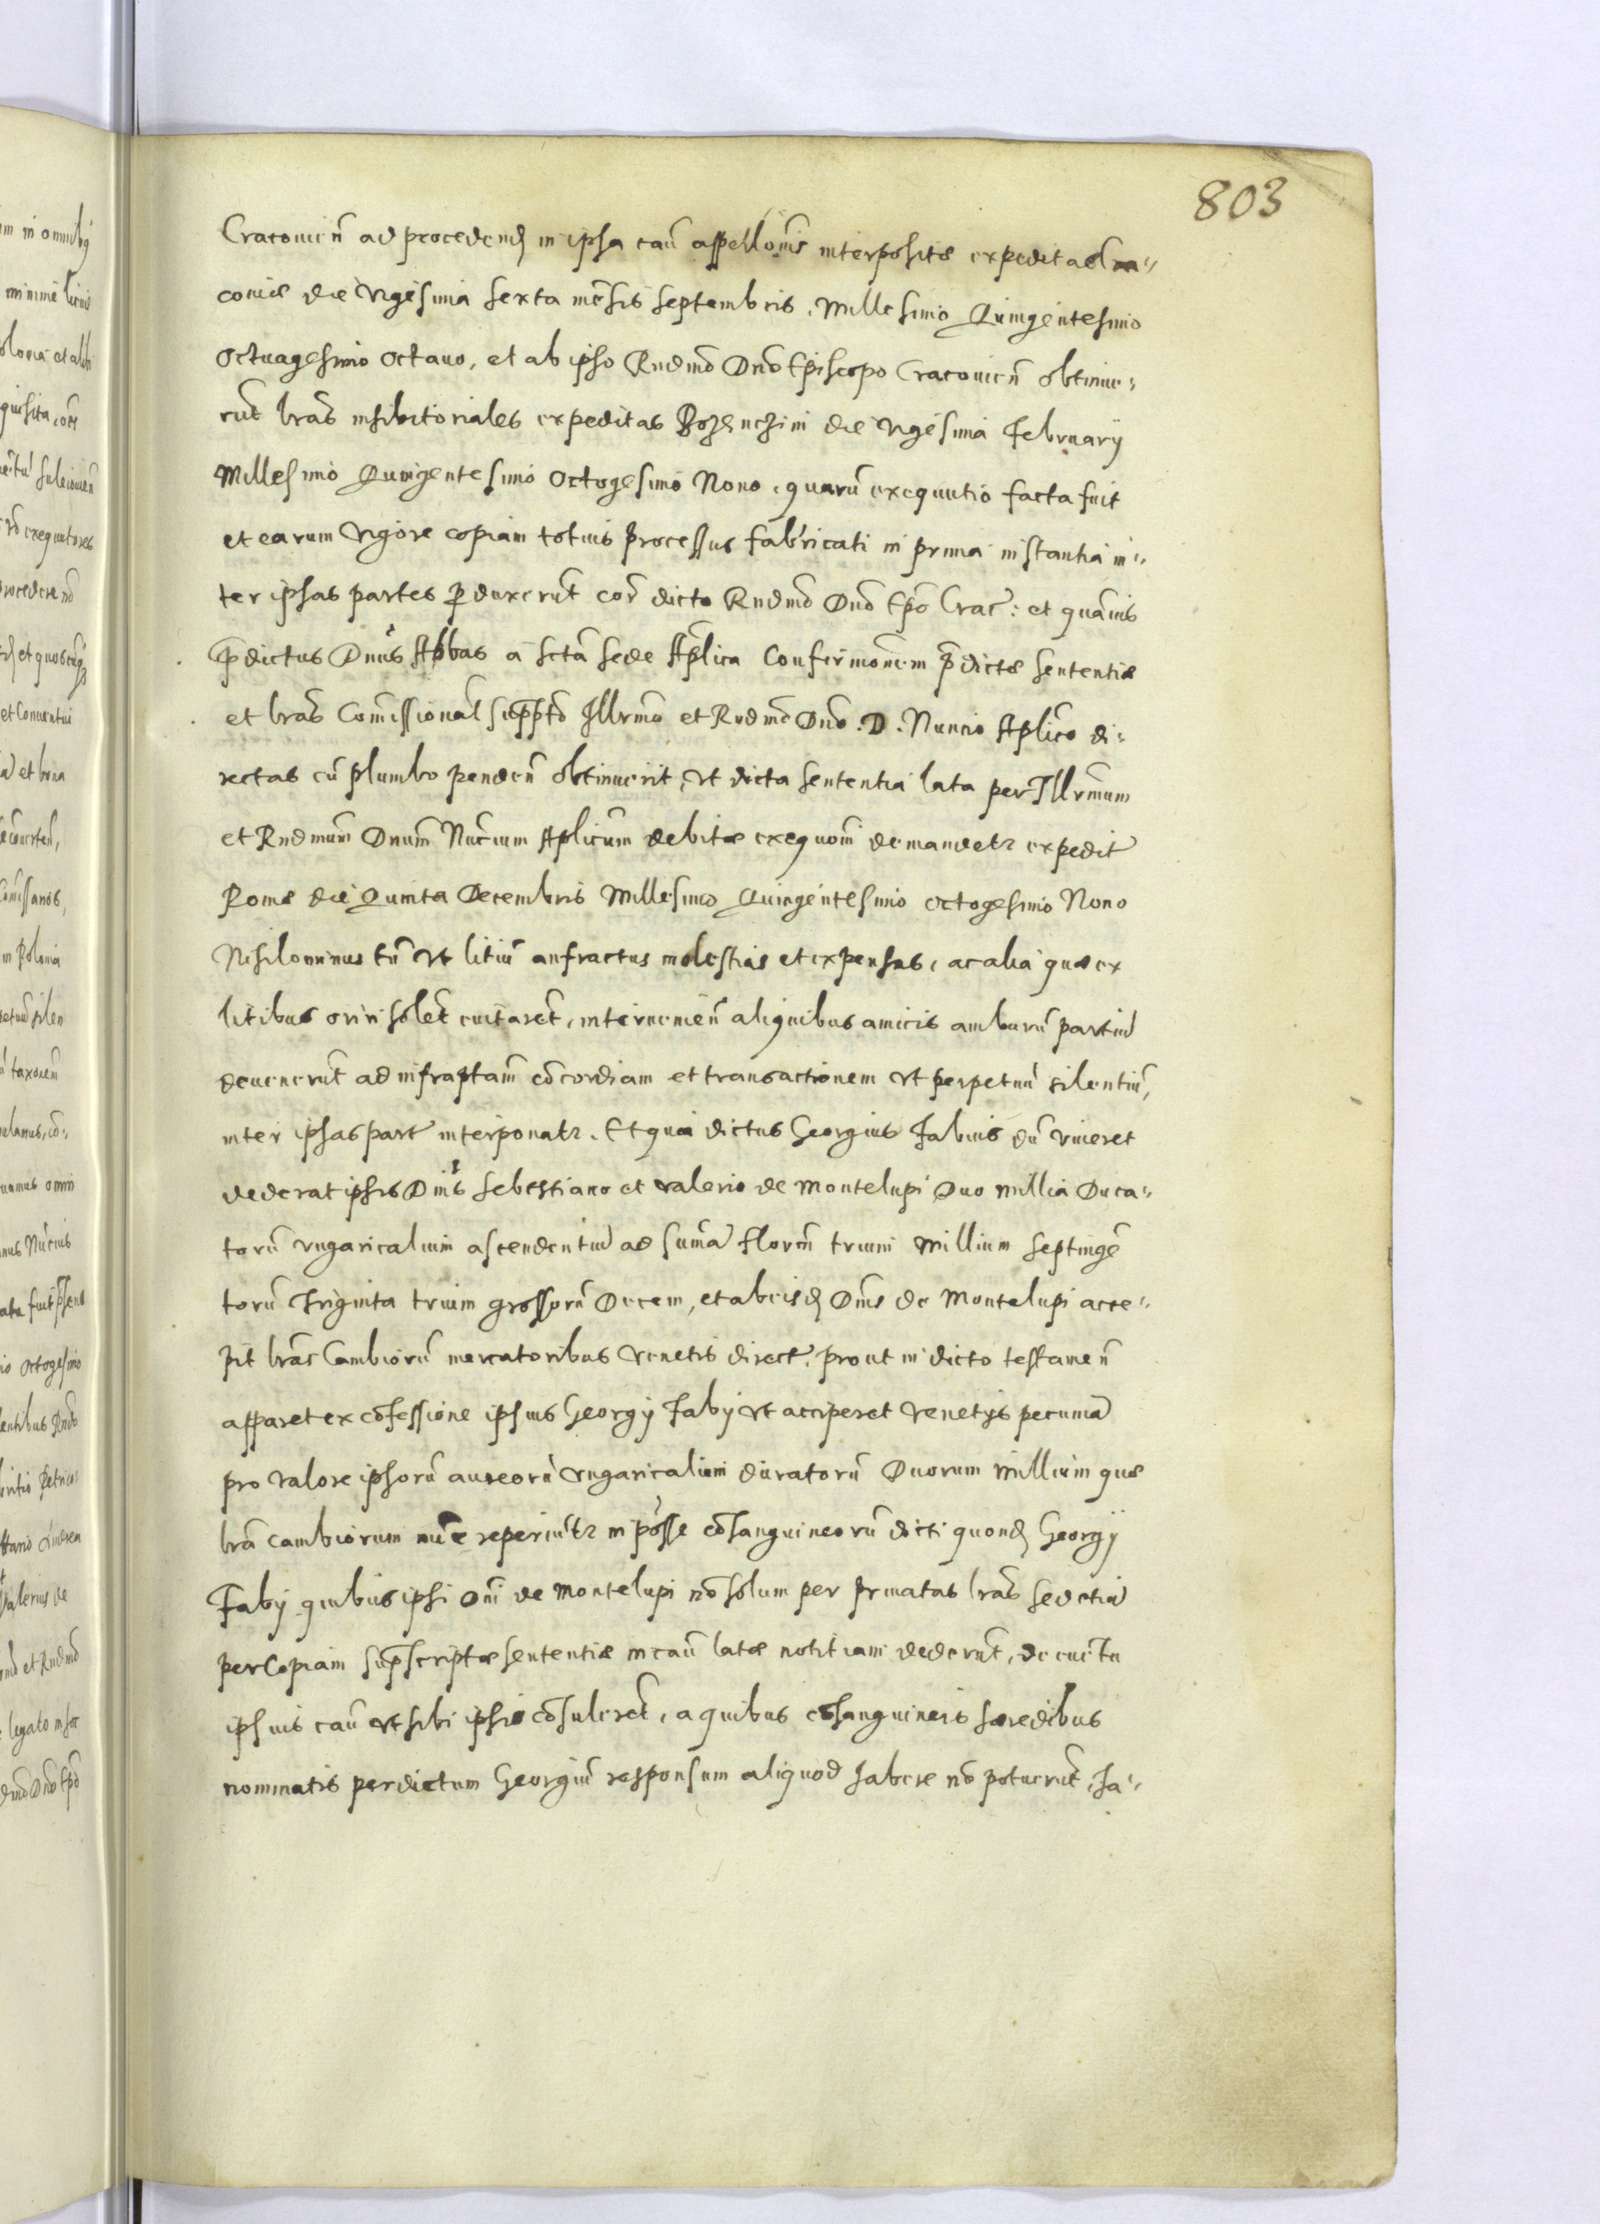 803
Cracouien̄ ad procedend in ipsa cau͠ appellonis interpositæ expeditas Cra=
couiæ die vigesima sexta mēsis Septembris, Millesimo Quingentesimo
octuagesimo octauo, et ab ipso Rndmo Dno Episcopo Cracouien̄ obtinue=
rūt lrās inhibitoriales expeditas Bozenczini die vigesima February
Millesimo Quingentesimo Octogesimo Nono, quarū exequutio facta fuit
et earum vigore copiam totius processus fabricati in prima instantia in=
ter ipsas partes ꝓduxerūt corā dicto Rndmo Dno Epo Crac: et quāuis
p̄dictus Dnus Abbas a sctā sede Aplica Confirmonem p̄dictæ sententiæ
et lrās Comissional supp̄to Illrmo et Rndmo Dno. D. Nuncio Aplico di=
rectas cū plumbo penden̄ obtinuerit, vt dicta sententia lata per Illrmum
et Rndmum Dnum Nūcium Aplicum debitæ exequoni demandetr expedit
Romæ die Quinta Decembris Millesimo Quingentesimo octogesimo Nono
Nihilominus tn̄ vt litiū anfractus molestias et expensas, ac alia quæ ex
litibus oriri solēt euitarēt, interuenien̄ aliquibus amicis ambarū partiū
deuenerūt ad infraptam cōcordiam et transactionem vt perpetuū silentiū,
inter ipsas part interponatr. Et quia dictus Georgius Fabius dū viueret
dederat ipsis Dnis Sebestiano et Valerio de Montelupi Duo Millia Duca=
torū vngaricalium ascendentiū ad sumā floren̄ trium Millium Septingē
torū Triginta trium grossorū Decem, et ab eisd Dnis de Montelupi acce=
pit lrās Cambiorū mercatoribus Venetis direct, prout in dicto testamen̄
apparet ex cōfessione ipsius Georgy Faby vt acciperet Venetys pecuniā
pro valore ipsorū aureorū vngaricalium ducatorū Duorum Millium quæ
lrā cambiorum nūc reperiūtr in posse cōsanguineorū dicti quond Georgij
Faby quibus ipsi Dni de Montelupi nō solum per priuatas lrās sed etiā
per Copiam sup̄scriptæ sententiæ in cau͠ latæ notitiam dederūt, de euētu
ipsius cau͠ vt sibi ipsis cōsulerēt, a quibus cōsanguineis hæredibus
nominatis per dictum Georgiū responsum aliquod habere nō potuerūt, Ia=